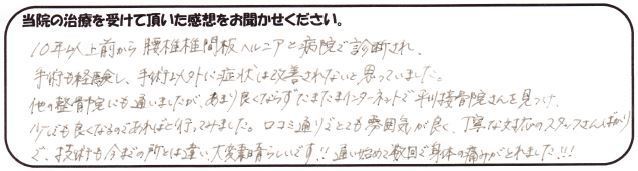 当院の治療を受けて頂いた感想をお聞かせください。
10年以上前から腰椎椎間板ヘルニアと病院で診断され、
手術も経験し、手術以外に症状は改善されないと思っていました。
他の整骨院にも通いましたが、あまり良くならずたまたまインターネットで平川接骨院さんを見つけ、
少しでも良くなるのであればと行ってみました。口コミ通りでとても雰囲気が良く、丁寧な対応のスタッフさんばかり
で、技術も今までの所とは違い大変素晴らしいです!!通い始めて数回で身体の痛みがとれました!!!